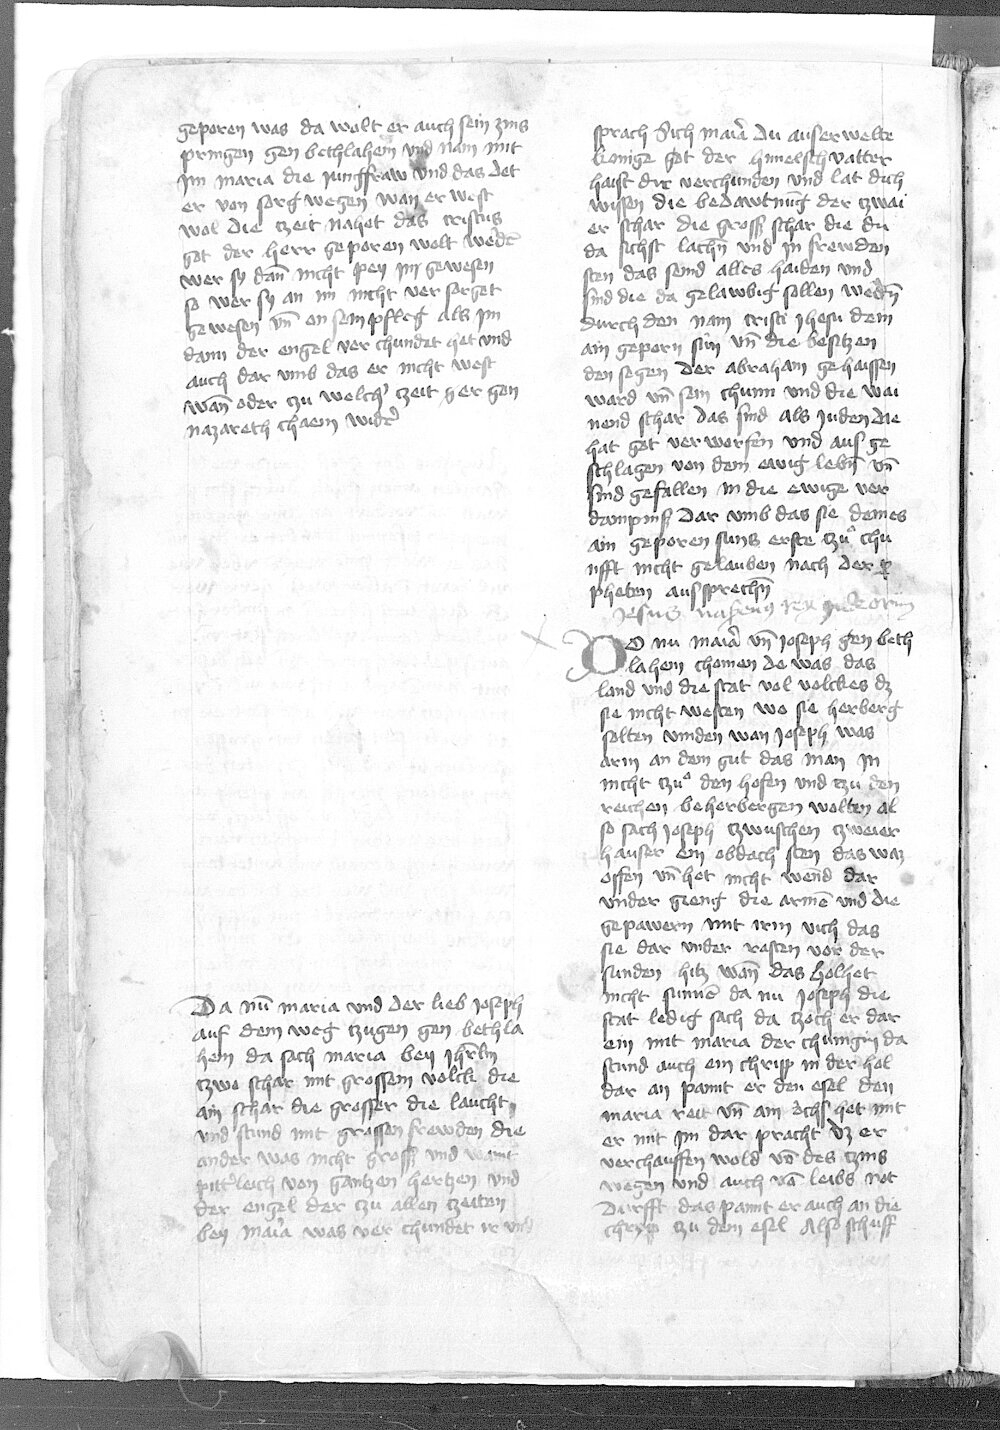 geporen was da wolt er auch sein zins
pringen gen bethlahem vnd nam mit
jm maria die jungfraw vnd das det
er von sorg wegen wan er west
wol die tzeit nahet das cristus
got der herr geporen wolt wedē
wer sy dañ nicht pey jm gewesen
so wer sy an im nicht versorget
gewesen vñ en sein pfleg als jm
dann der engel verchundet het vnd
auch dar vmb das er nicht west
wañ oder tzu welch' tzeit er gen
nazareth chaem wid'
Da nu maria vnd der lieb joseph
auf dem weg tzugen gen bethla
hem da sach maria bey jhrlm
tzwo schar mit grossem volck die
ain schar die grosser die laucht
vnd stund mit grossen frewden die
ander was nicht gross vnd waint
pitt'leich von gantzen hertzen vnd
der engel der tzu allen tzeiten
bey mai'a was verchundet ir vnd
sprach Sich mai'a du auserwelte
konige got der himelsch vatter
haist dir verchunden vnd lat dich
wissen die bedawtnug der tzwai
er schar die gross schar die du
da sichst lachn vnd jn frewden
sten das send alles haiden vnd
sind die da gelawbig sollen wedñ
durch den nam cristi jhesu dem
ain geporn sun vñ die besitzen
den segen der abraham gehaissen
ward vñ sein chunn vnd die wai
nend schar das sind als juden die
hat got verworfen vnd aus ge
schlagen von dem ewig lebñ vñ
sind gefallen in die ewige ver
dampniss dar vmb das sie deines
ain geporen suns erste tzu chu
nfft nicht gelauben nach der p
pheten aussprechñ
jesus nasrenus rex judeorum
Do nu mai'a vñ joseph gen beth
lahem chomen do was das
land vnd die stat vol volckes dz
sie nicht westen wo sie herberg
solten vinden wan joseph was
arm an dem gut das man jn
nicht tzu den hofen vnd tzu den
reichen beherbergen wolten al
so sach joseph tzwuschen tzweier
hauser ein obdach sten das waz
offen vñ het nicht wend dar
vnder gieng die armē vnd die
gepawern mit irm vich das
sie dar vnder rasten vor der
sunden hitz wañ das hol het
nicht sunnē da nu joseph die
stat ledig sach da tzoch er dar
ein mit maria der chunigin da
stund auch ein chripp in der hol
dar an pannt er den esel den
maria reit vñ ain ochs het mit
er mit jm dar pracht dz er
verchauffen wold vō des tzins
wegen vnd auch vō leibs not
durfft das pannt er auch an die
chrypp tzu dem esel Also schuff